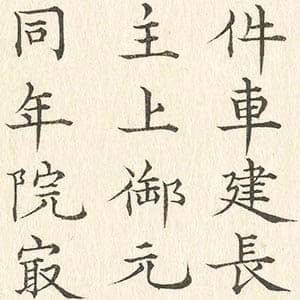 件車建長
主上御元
同年院㝡